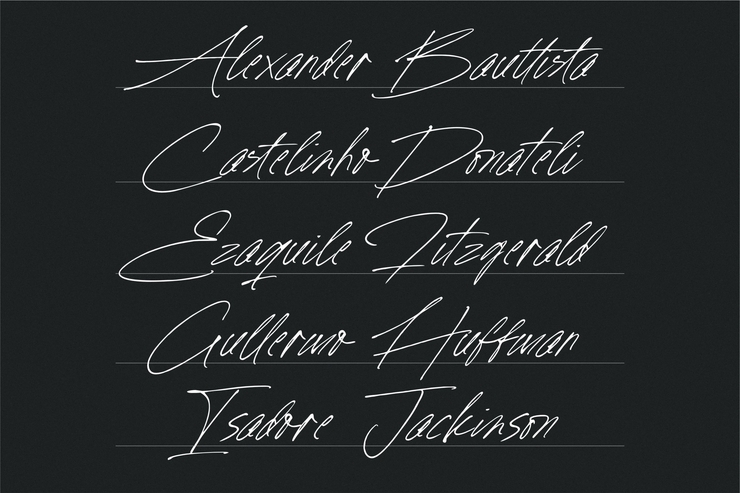 Alexander Bauttista
Castelinho Donateli
Ezaquile Fitzgerald
Gullermo Huffman
Isadore Jackinson